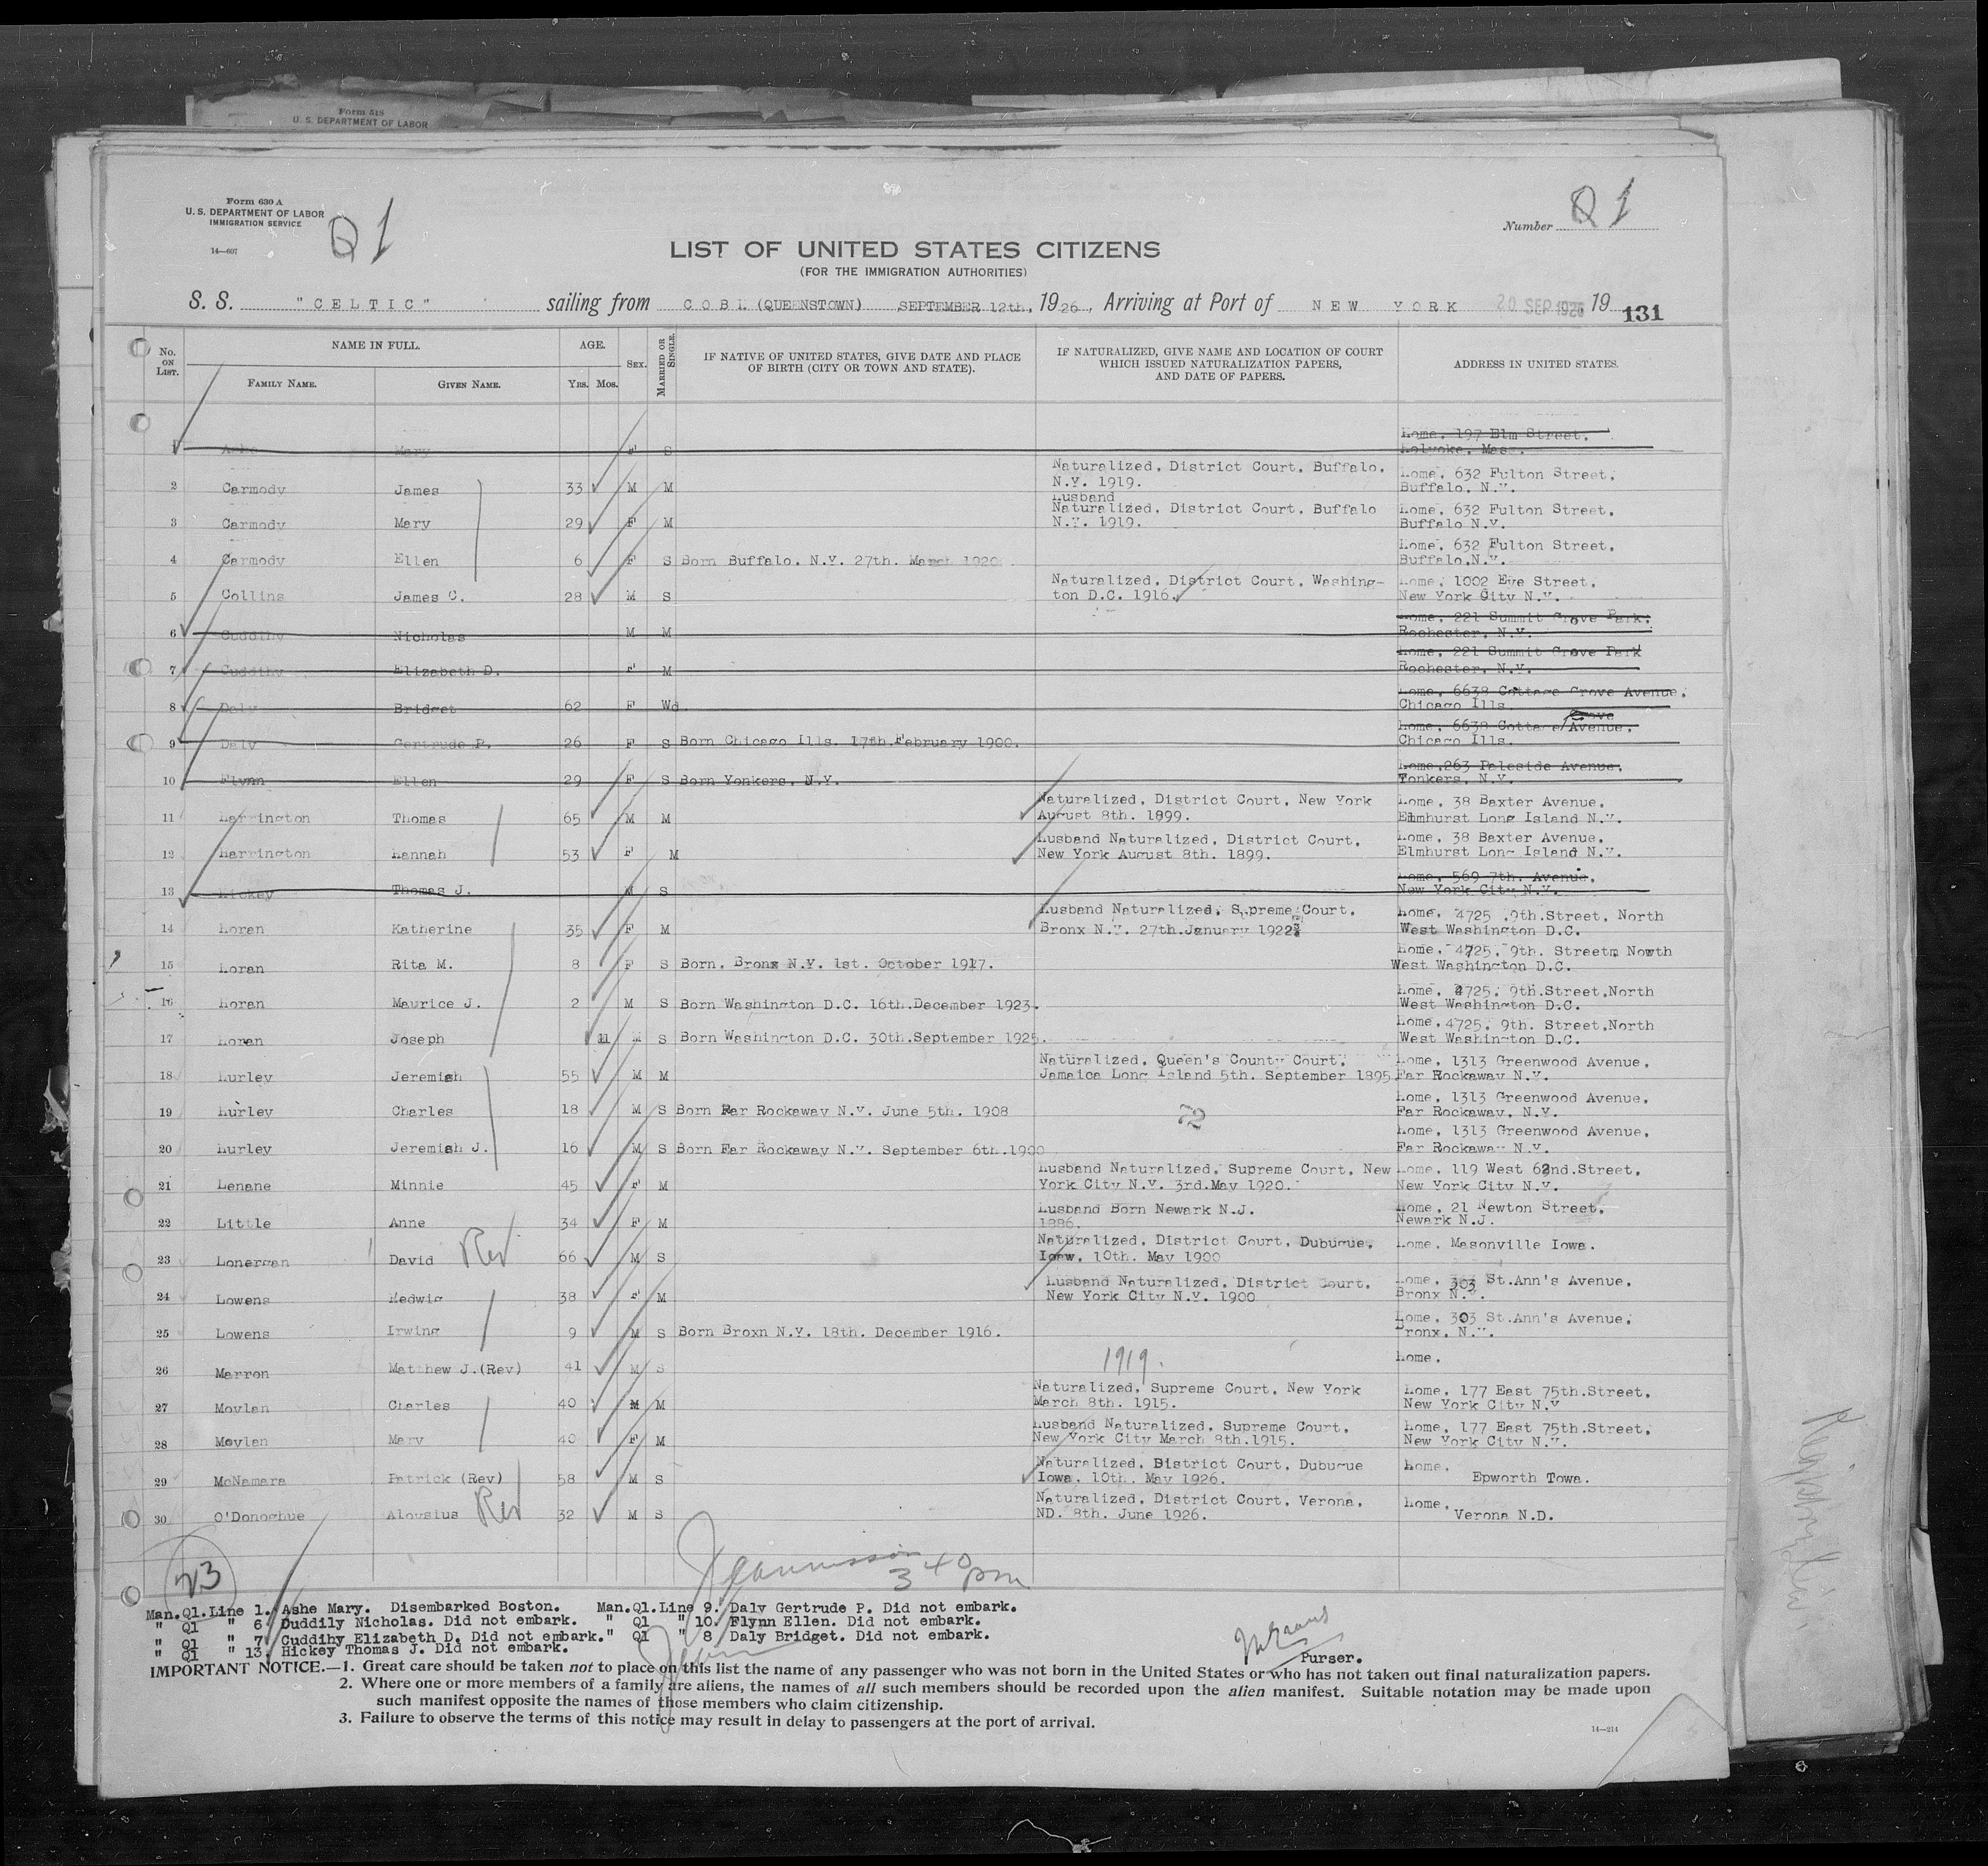 Form 518
U. S. DEPARTMENT OF LABOR
Form 630 A
U. S. DEPARTMENT OF LABOR
IMMIGRATION SERVICE
14—607
Q1
Number Q1
LIST OF UNITED STATES CITIZENS
(FOR THE IMMIGRATION AUTHORITIES)
S. S. "CELTIC" sailing from COBH (QUEENSTOWN) SEPTEMBER 12th, 1926, Arriving at Port of NEW YORK 20 SEP 1926 19 131
No. ON LIST. NAME IN FULL. AGE. SEX. MARRIED OR SINGLE. IF NATIVE OF UNITED STATES, GIVE DATE AND PLACE OF BIRTH (CITY OR TOWN AND STATE). IF NATURALIZED, GIVE NAME AND LOCATION OF COURT WHICH ISSUED NATURALIZATION PAPERS, AND DATE OF PAPERS. ADDRESS IN UNITED STATES.
FAMILY NAME. GIVEN NAME. YRS. MOS.
1 Ashe Mary F S Home. 197 Elm Street. Holyoke. Mass.
2 Carmody James 33 M M Naturalized. District Court. Buffalo. N.Y. 1919. Home. 632 Fulton Street. Buffalo. N.Y.
3 Carmody Mary 29 F M Husband Naturalized. District Court. Buffalo N.Y. 1919. Home. 632 Fulton Street. Buffalo N.Y.
4 Carmody Ellen 6 F S Born Buffalo. N.Y. 27th. March 1920 Home. 632 Fulton Street. Buffalo.N.Y.
5 Collins James C. 28 M S Naturalized. District Court. Washington D.C. 1916. Home. 1002 Eve Street. New York City N.Y.
6 Cuddihy Nicholas M M Home. 221 Summit Grove Park. Rochester. N.Y.
7 Cuddihy Elizabeth D. F M Home. 221 Summit Grove Park Rochester. N.Y.
8 Daly Bridget 62 F Wd. Home. 6638 Cottage Grove Avenue. Chicago Ills.
9 Daly Gertrude P. 26 F S Born Chicago Ills. 17th.February 1900. Home. 6638 Cottage Grove Avenue. Chicago Ills.
10 Flynn Ellen 29 F S Born Yonkers. N.Y. Home.263 Paleside Avenue. Yonkers. N.Y.
11 Harrington Thomas 65 M M Naturalized. District Court. New York August 8th. 1899. Home. 38 Baxter Avenue. Elmhurst Long Island N.Y.
12 Harrington Hannah 53 F M Husband Naturalized. District Court. New York August 8th. 1899. Home. 38 Baxter Avenue. Elmhurst Long Island N.Y.
13 Hickey Thomas J. M S Home. 569 7th. Avenue. New York City N.Y.
14 Horan Katherine 35 F M Husband Naturalized. Supreme Court. Bronx N.Y. 27th.January 1922 Home. 4725 .9th.Street. North West Washington D.C.
15 Horan Rita M. 8 F S Born. Bronx N.Y. 1st. October 1917. Home. 4725. 9th. Streetm North West Washington D.C.
16 Horan Maurice J. 2 M S Born Washington D.C. 16th.December 1923. Home. 4725. 9th.Street.North West Washington D.C.
17 Horan Joseph 11 M S Born Washington D.C. 30th.September 1925. Home.4725. 9th. Street.North West Washington D.C.
18 Hurley Jeremiah 55 M M Naturalized. Queen's County Court. Jamaica Long Island 5th. September 1895 Home. 1313 Greenwood Avenue. Far Rockaway N.Y.
19 Hurley Charles 18 M S Born Far Rockaway N.Y. June 5th. 1908 72 Home. 1313 Greenwood Avenue. Far Rockaway. N.Y.
20 Hurley Jeremiah J. 16 M S Born Far Rockaway N.Y. September 6th.1900 Home. 1313 Greenwood Avenue. Far Rockaway N.Y.
21 Lenane Minnie 45 F M Husband Naturalized. Supreme Court. New York City N.Y. 3rd.May 1920. Home. 119 West 62nd.Street. New York City N.Y.
22 Little Anne 34 F M Husband Born Newark N.J. 1886. Home. 21 Newton Street. Newark N.J.
23 Lonergan David Rev 66 M S Naturalized. District Court. Dubuque. Ioaw. 10th. May 1900 Home. Masonville Iowa.
24 Lowens Hedwig 38 F M Husband Naturalized. District Court. New York City N.Y. 1900 Home. 303 St.Ann's Avenue. Bronx N.Y.
25 Lowens Irwing 9 M S Born Broxn N.Y. 18th. December 1916. Home. 303 St.Ann's Avenue. Bronx. N.Y.
26 Marron Matthew J.(Rev) 41 M S 1919. Home.
27 Moylan Charles 40 M M Naturalized. Supreme Court. New York March 8th. 1915. Home. 177 East 75th.Street. New York City N.Y
28 Moylan Mary 40 F M Husband Naturalized. Supreme Court. New York City March 8th.1915. Home. 177 East 75th.Street. New York City N.Y.
29 McNamara Patrick (Rev) 58 M S Naturalized. District Court. Dubuque Iowa. 10th. May 1926. Home. Epworth Towa.
30 O'Donoghue Aloysius Rev 32 M S Naturalized. District Court. Verona. ND. 8th. June 1926. Home. Verona N.D.
23
3 40 pm
Man.Q1.Line 1. Ashe Mary. Disembarked Boston. Man.Q1.Line 9. Daly Gertrude P. Did not embark.
" Q1 " 6. Duddily Nicholas. Did not embark. " Q1 " 10. Flynn Ellen. Did not embark.
" Q1 " 7. Cuddihy Elizabeth D. Did not embark. " Q1 " 8. Daly Bridget. Did not embark.
" Q1 " 13. Hickey Thomas J. Did not embark.
Purser.
IMPORTANT NOTICE.—1. Great care should be taken not to place on this list the name of any passenger who was not born in the United States or who has not taken out final naturalization papers.
2. Where one or more members of a family are aliens, the names of all such members should be recorded upon the alien manifest. Suitable notation may be made upon
such manifest opposite the names of those members who claim citizenship.
3. Failure to observe the terms of this notice may result in delay to passengers at the port of arrival.
14—214